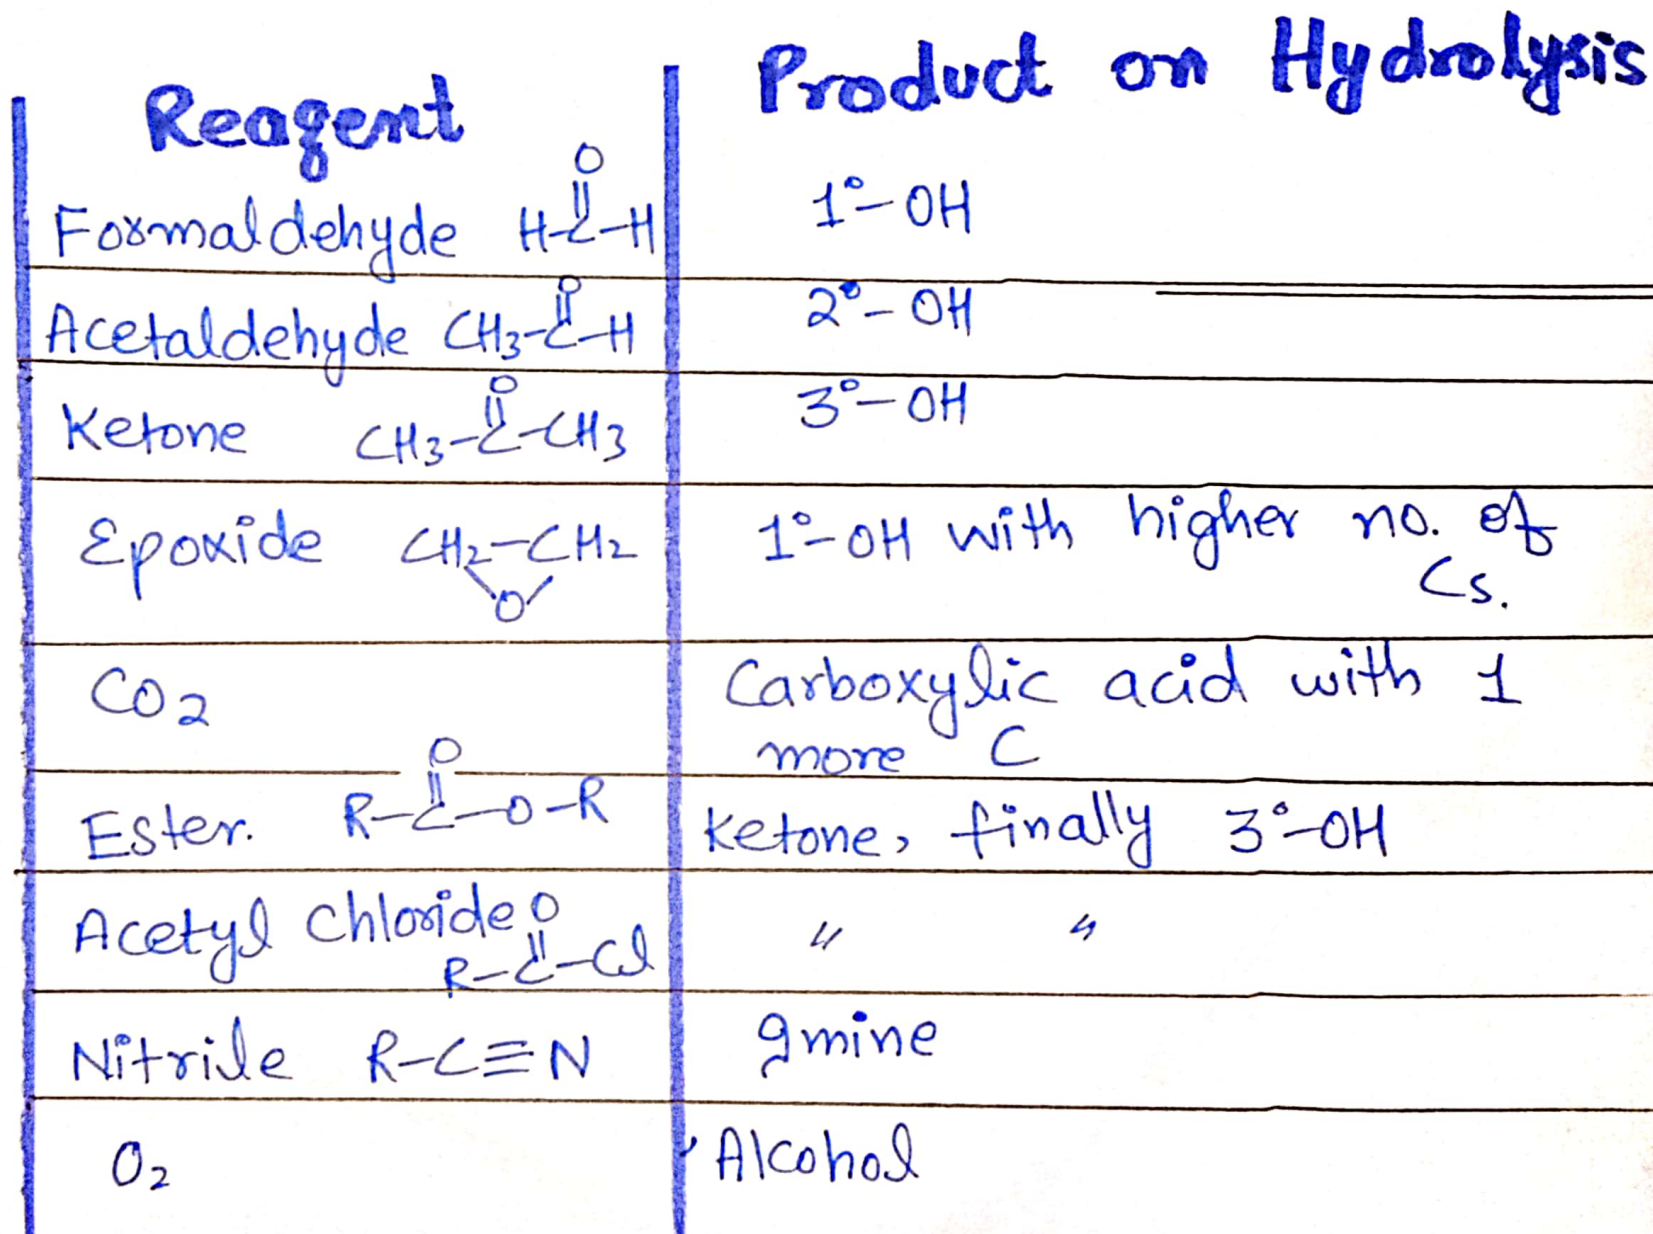 Reagent | Product on Hydrolysis
Formaldehyde H-C(=O)-H | 1°-OH
Acetaldehyde CH3-C(=O)-H | 2°-OH
Ketone CH3-C(=O)-CH3 | 3°-OH
Epoxide CH2-CH2 O | 1°-OH with higher no. of
Cs.
CO2 | Carboxylic acid with 1
more C
Ester. R-C(=O)-O-R | Ketone, finally 3°-OH
Acetyl Chloride R-C(=O)-Cl | " "
Nitrile R-C≡N | amine
O2 | Alcohol